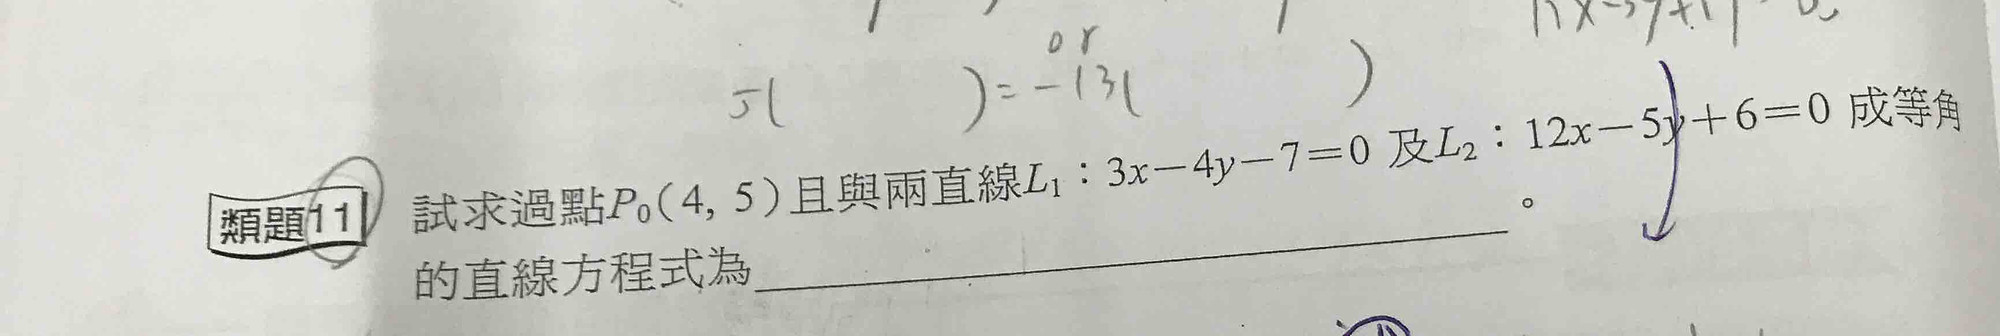 or
5(　　)=-13(　　)
類題11 試求過點P₀(4, 5)且與兩直線L₁：3x－4y－7＝0 及L₂：12x－5y＋6＝0 成等角
的直線方程式為＿＿＿＿＿＿＿＿＿＿。